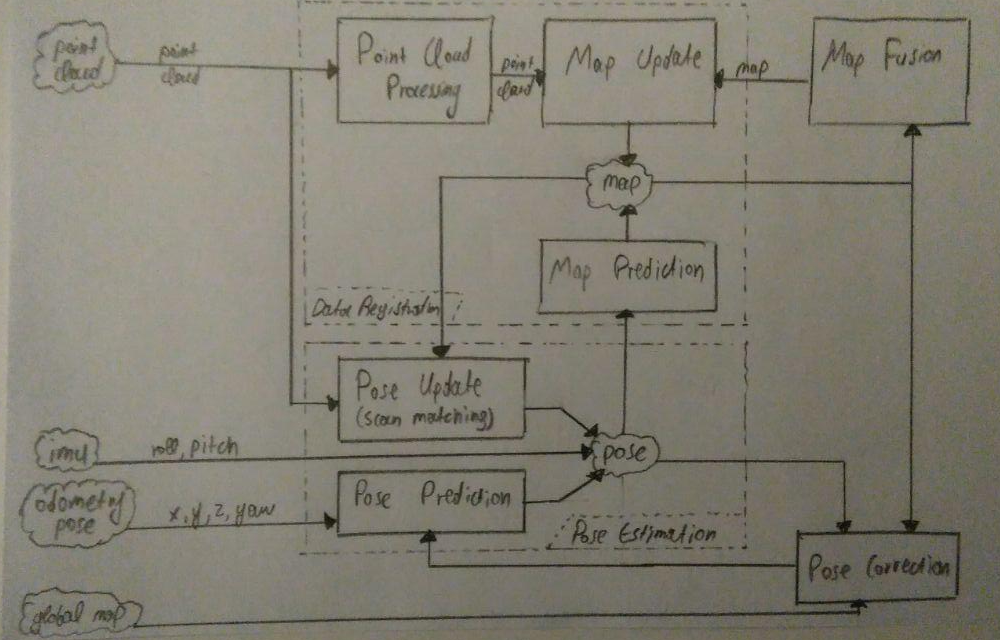 point
cloud
point
cloud
Point Cloud
Processing
point
cloud
Map Update
map
Map Fusion
map
Map Prediction
Data Registration
Pose Update
(scan matching)
imu
roll, pitch
pose
odometry
pose
x, y, z, yaw
Pose Prediction
Pose Estimation
Pose Correction
global map